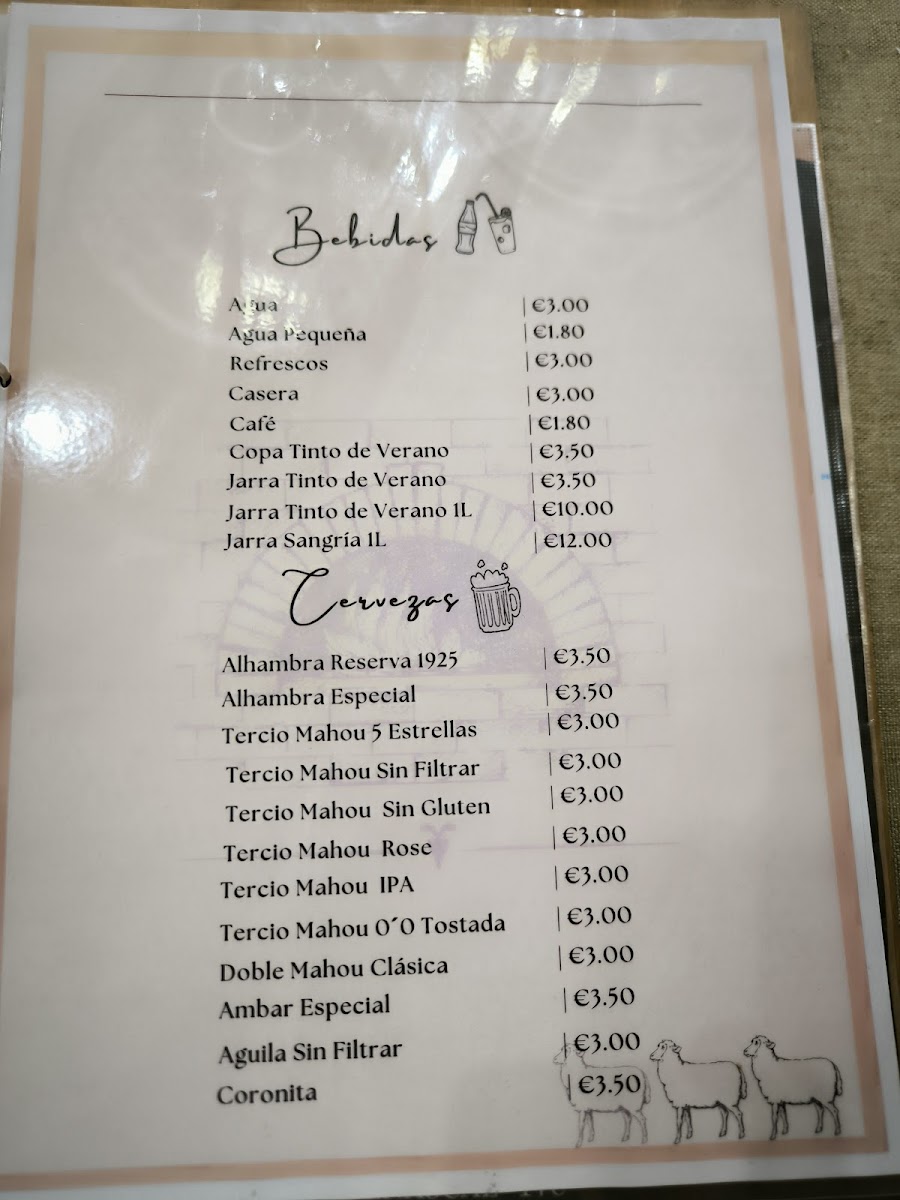 Bebidas
Agua | €3.00
Agua Pequeña | €1.80
Refrescos | €3.00
Casera | €3.00
Café | €1.80
Copa Tinto de Verano | €3.50
Jarra Tinto de Verano | €3.50
Jarra Tinto de Verano 1L | €10.00
Jarra Sangría 1L | €12.00
Cervezas
Alhambra Reserva 1925 | €3.50
Alhambra Especial | €3.50
Tercio Mahou 5 Estrellas | €3.00
Tercio Mahou Sin Filtrar | €3.00
Tercio Mahou Sin Gluten | €3.00
Tercio Mahou Rose | €3.00
Tercio Mahou IPA | €3.00
Tercio Mahou 0´0 Tostada | €3.00
Doble Mahou Clásica | €3.00
Ambar Especial | €3.50
Aguila Sin Filtrar | €3.00
Coronita | €3.50